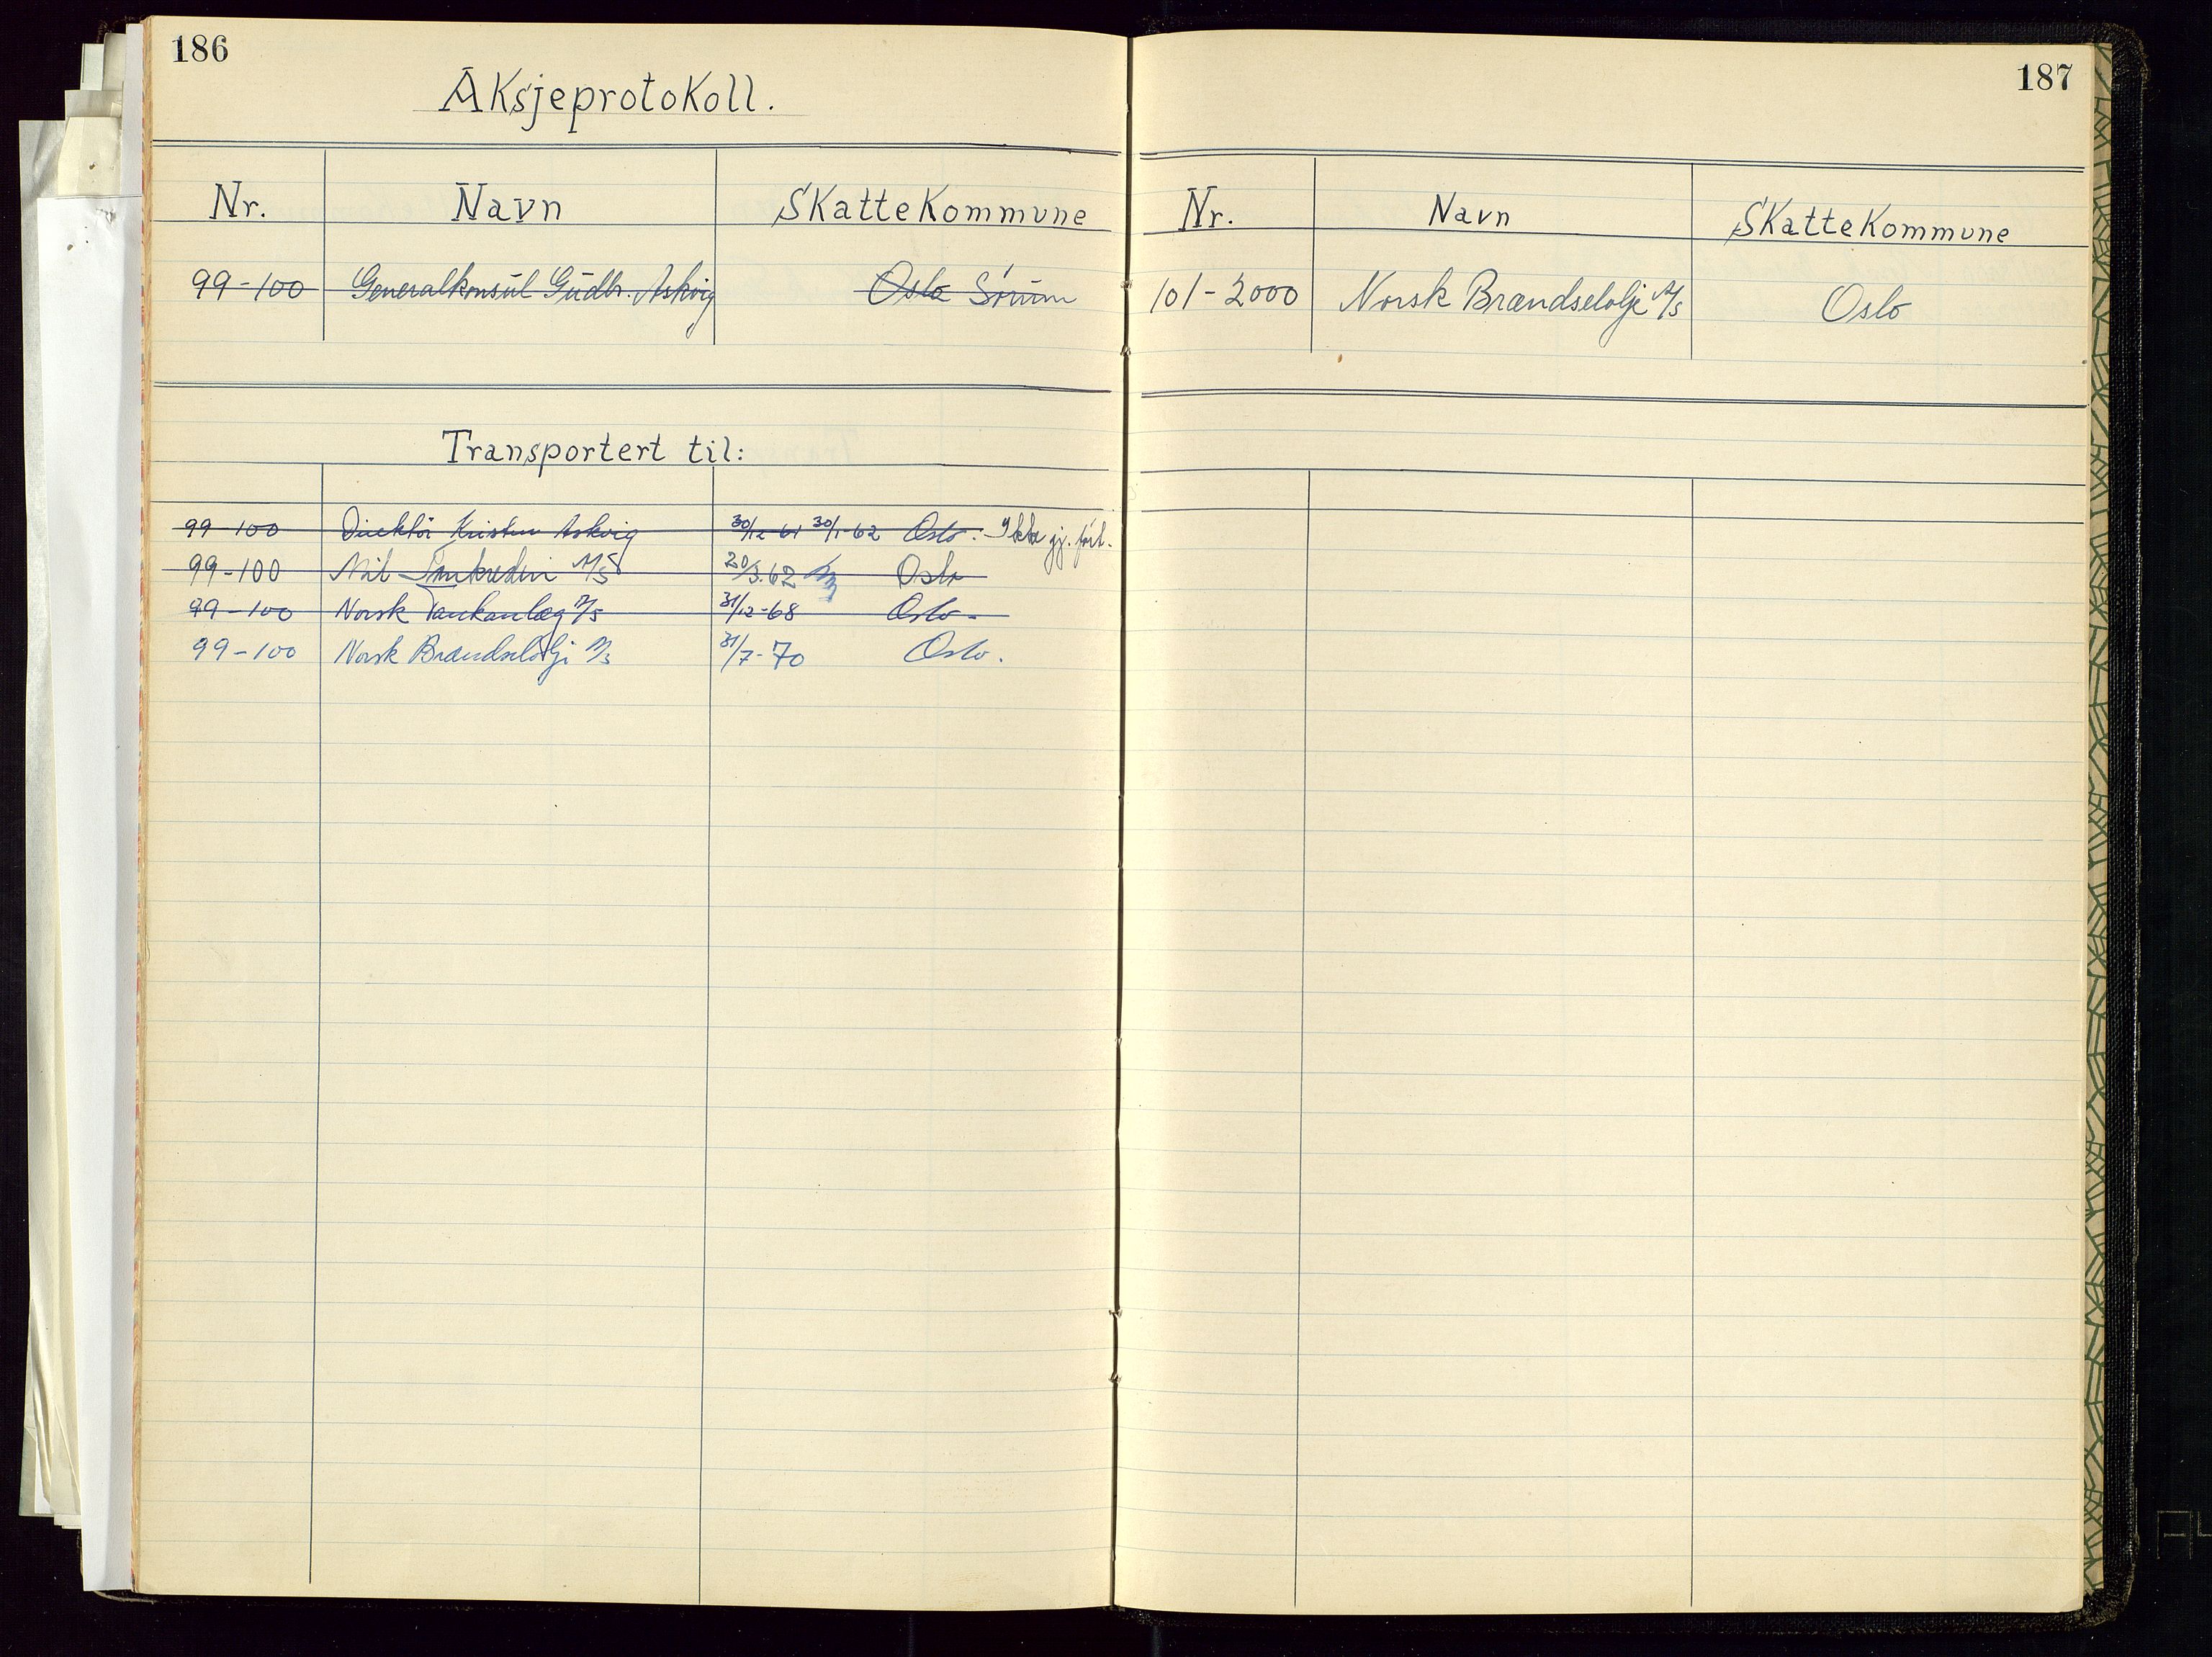 186
Aksjeprotokoll.
Nr. Navn Skattekommune
99-100 Generalkonsul Gudbr. Askvig Oslo Sørum
Transportert til:
99-100 Direktør Kristen Askvig 30/12-61 30/1-62 Oslo. Ikke gj. ført.
99-100 Mil A/S 20/3.62 Oslo
99-100 Norsk Tankanlæg A/S 31/12-68 Oslo.
99-100 Norsk Brændselolje A/S 31/7-70 Oslo.
187
Nr. Navn Skattekommune
101-2000 Norsk Brændselolje A/S Oslo